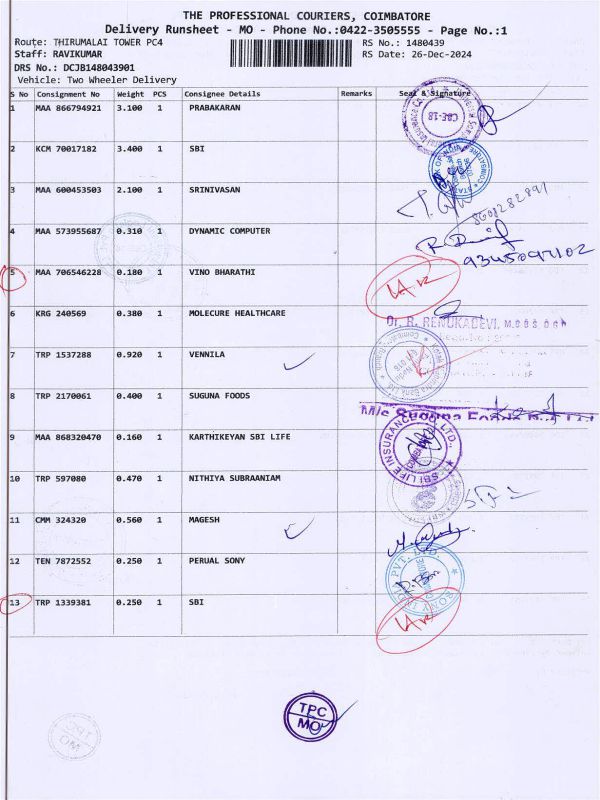 THE PROFESSIONAL COURIERS, COIMBATORE
Delivery Runsheet - MO - Phone No.:0422-3505555 - Page No.:1
Route: THIRUMALAI TOWER PC4 RS No.: 1480439
Staff: RAVIKUMAR RS Date: 26-Dec-2024
DRS No.: DCJB148043901
Vehicle: Two Wheeler Delivery
S No Consignment No Weight PCS Consignee Details Remarks Seal & Signature
1 MAA 866794921 3.100 1 PRABAKARAN
CBE-18
2 KCM 70017182 3.400 1 SBI
3 MAA 600453503 2.100 1 SRINIVASAN
8601282891
4 MAA 573955687 0.310 1 DYNAMIC COMPUTER
9345097102
5 MAA 706546228 0.180 1 VINO BHARATHI
6 KRG 240569 0.380 1 MOLECURE HEALTHCARE
Dr. R. RENUKADEVI, M.B.B.S., D.G.H
7 TRP 1537288 0.920 1 VENNILA
8 TRP 2170061 0.400 1 SUGUNA FOODS
M/s Suguna Foods Pvt Ltd
9 MAA 868320470 0.160 1 KARTHIKEYAN SBI LIFE
SBI LIFE INSURANCE CO. LTD.,
10 TRP 597080 0.470 1 NITHIYA SUBRAANIAM
11 CMM 324320 0.560 1 MAGESH
12 TEN 7872552 0.250 1 PERUAL SONY
SONY INDIA PVT. LTD
13 TRP 1339381 0.250 1 SBI
TPC
MO
TPC
MO